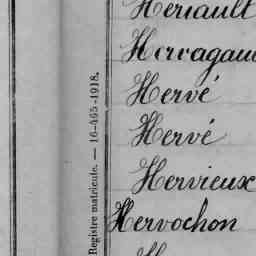 Hériault
Hervé
Hervé
Hervieux
Hervochon
Registre matricule. — 16-465-1918.